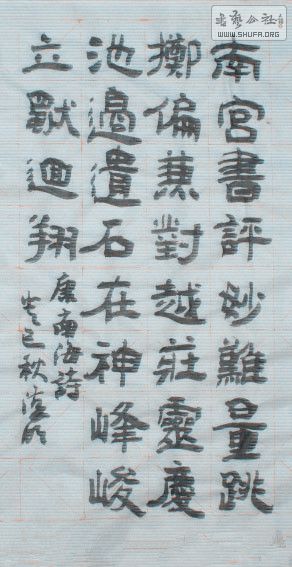 书艺公社
WWW.SHUFA.ORG
南宮書評妙難量跳
擲偏兼對越莊靈慶
池邊遺石在神峰峻
立獸迴翔
康南海詩
癸巳秋